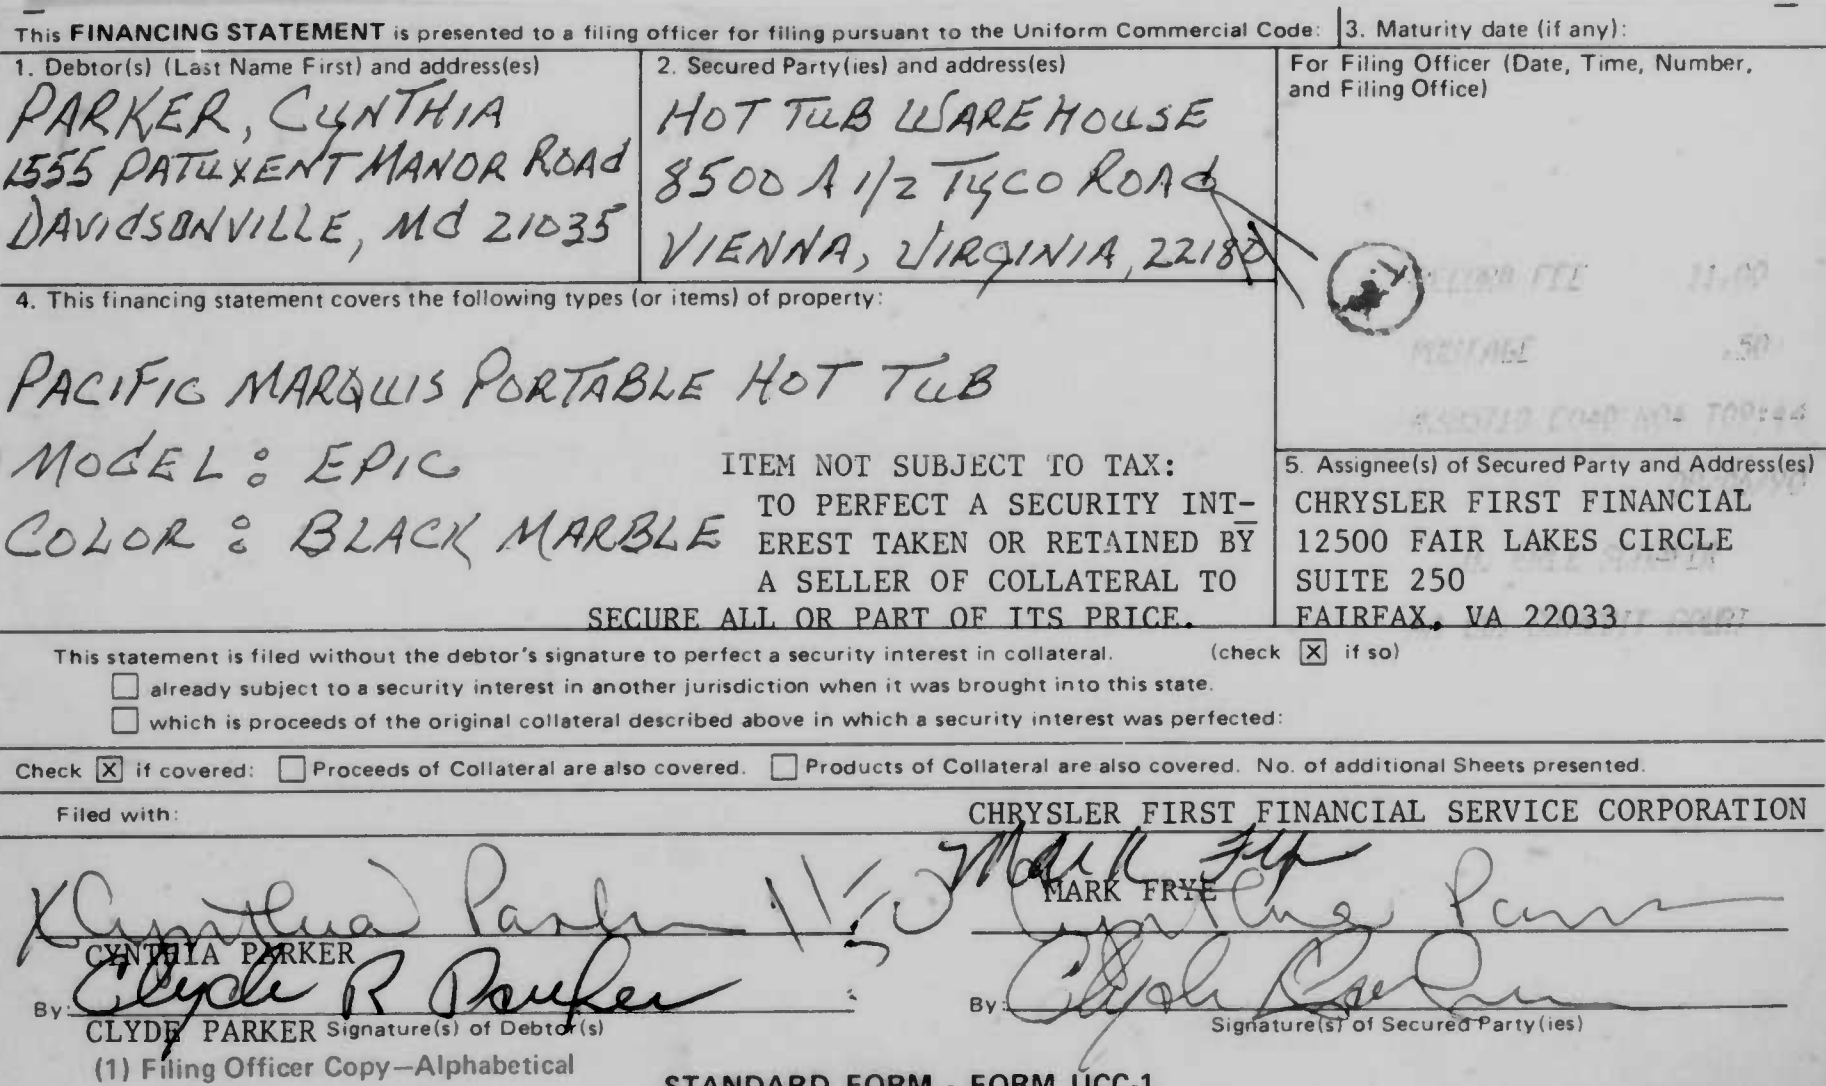 This FINANCING STATEMENT is presented to a filing officer for filing pursuant to the Uniform Commercial Code:
3. Maturity date (if any):
1. Debtor(s) (Last Name First) and address(es)
PARKER, CYNTHIA
1555 PATUXENT MANOR ROAd
DAVIdSONVILLE, Md 21035
2. Secured Party(ies) and address(es)
HOT TUB WAREHOUSE
8500 A 1/2 TYCO ROAd
VIENNA, VIRGINIA, 22180
For Filing Officer (Date, Time, Number,
and Filing Office)
RECORD FEE 11.00
POSTAGE .50
4. This financing statement covers the following types (or items) of property:
PACIFIC MARQUIS PORTABLE HOT TUB
MOdEL : EPIC
COLOR : BLACK MARBLE
ITEM NOT SUBJECT TO TAX:
TO PERFECT A SECURITY INT-
EREST TAKEN OR RETAINED BY
A SELLER OF COLLATERAL TO
SECURE ALL OR PART OF ITS PRICE.
5. Assignee(s) of Secured Party and Address(es)
CHRYSLER FIRST FINANCIAL
12500 FAIR LAKES CIRCLE
SUITE 250
FAIRFAX, VA 22033
This statement is filed without the debtor's signature to perfect a security interest in collateral. (check X if so)
already subject to a security interest in another jurisdiction when it was brought into this state.
which is proceeds of the original collateral described above in which a security interest was perfected:
Check X if covered: Proceeds of Collateral are also covered. Products of Collateral are also covered. No. of additional Sheets presented.
Filed with:
CHRYSLER FIRST FINANCIAL SERVICE CORPORATION
Mark Frye
MARK FRYE
X Cynthia Parker
Cynthia Parker
CYNTHIA PARKER
By: Clyde R Parker
By: Clyde Parker
CLYDE PARKER Signature(s) of Debtor(s)
Signature(s) of Secured Party(ies)
(1) Filing Officer Copy—Alphabetical
STANDARD FORM - FORM UCC-1